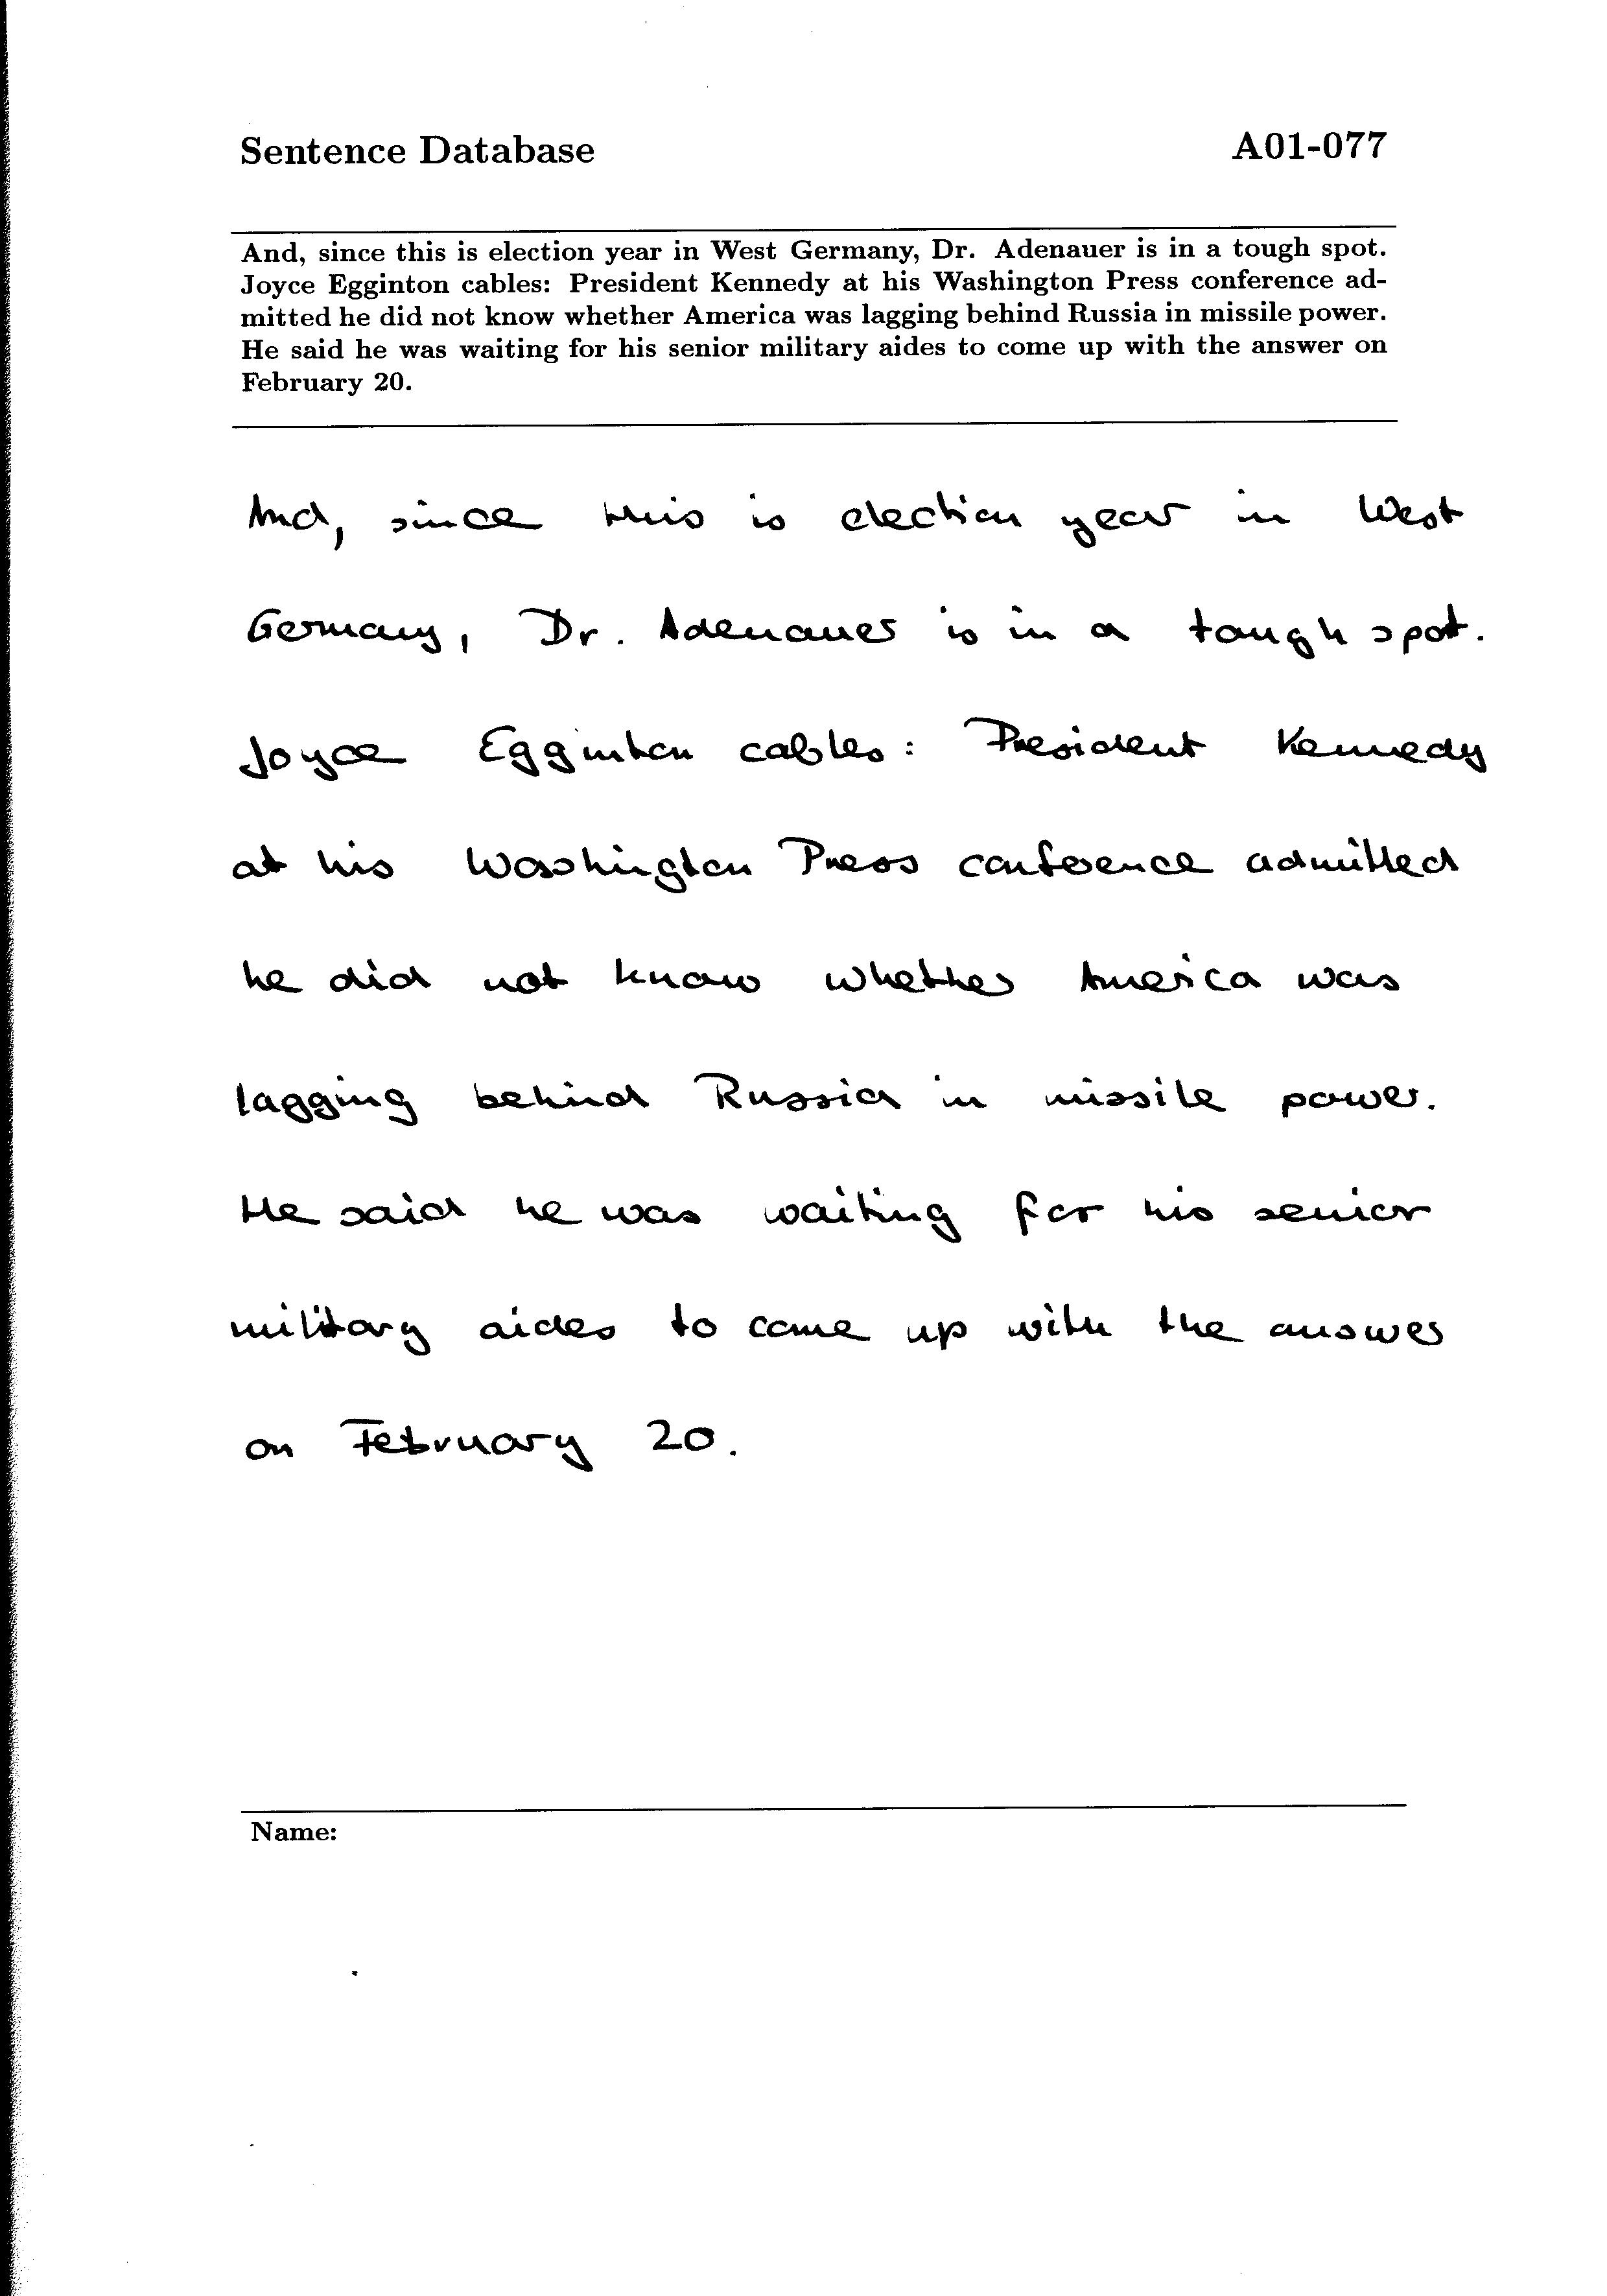 Sentence Database
A01-077
And, since this is election year in West Germany, Dr. Adenauer is in a tough spot.
Joyce Egginton cables: President Kennedy at his Washington Press conference ad-
mitted he did not know whether America was lagging behind Russia in missile power.
He said he was waiting for his senior military aides to come up with the answer on
February 20.
And, since this is election year in West
Germany, Dr. Adenauer is in a tough spot.
Joyce Egginton cables: President Kennedy
at his Washington Press conference admitted
he did not know whether America was
lagging behind Russia in missile power.
He said he was waiting for his senior
military aides to come up with the answer
on February 20.
Name: